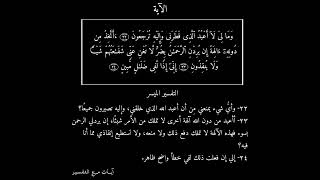 الآية
وَمَا لِيَ لَا أَعْبُدُ الَّذِي فَطَرَنِي وَإِلَيْهِ تُرْجَعُونَ ﴿٢٢﴾ ءَأَتَّخِذُ مِن
دُونِهِ ءَالِهَةً إِن يُرِدْنِ الرَّحْمَٰنُ بِضُرٍّ لَّا تُغْنِ عَنِّي شَفَاعَتُهُمْ شَيْئًا
وَلَا يُنقِذُونِ ﴿٢٣﴾ إِنِّي إِذًا لَّفِي ضَلَالٍ مُّبِينٍ ﴿٢٤﴾
التفسير الميسر
٢٢- وأيُّ شيء يمنعني من أن أعبد الله الذي خلقني، وإليه تصيرون جميعًا؟
٢٣- أأعبد من دون الله آلهة أخرى لا تملك من الأمر شيئًا، إن يردني الرحمن
بسوء فهذه الآلهة لا تملك دفع ذلك ولا منعه، ولا تستطيع إنقاذي مما أنا
فيه؟
٢٤- إني إن فعلت ذلك لفي خطأ واضح ظاهر.
آيات مع التفسير